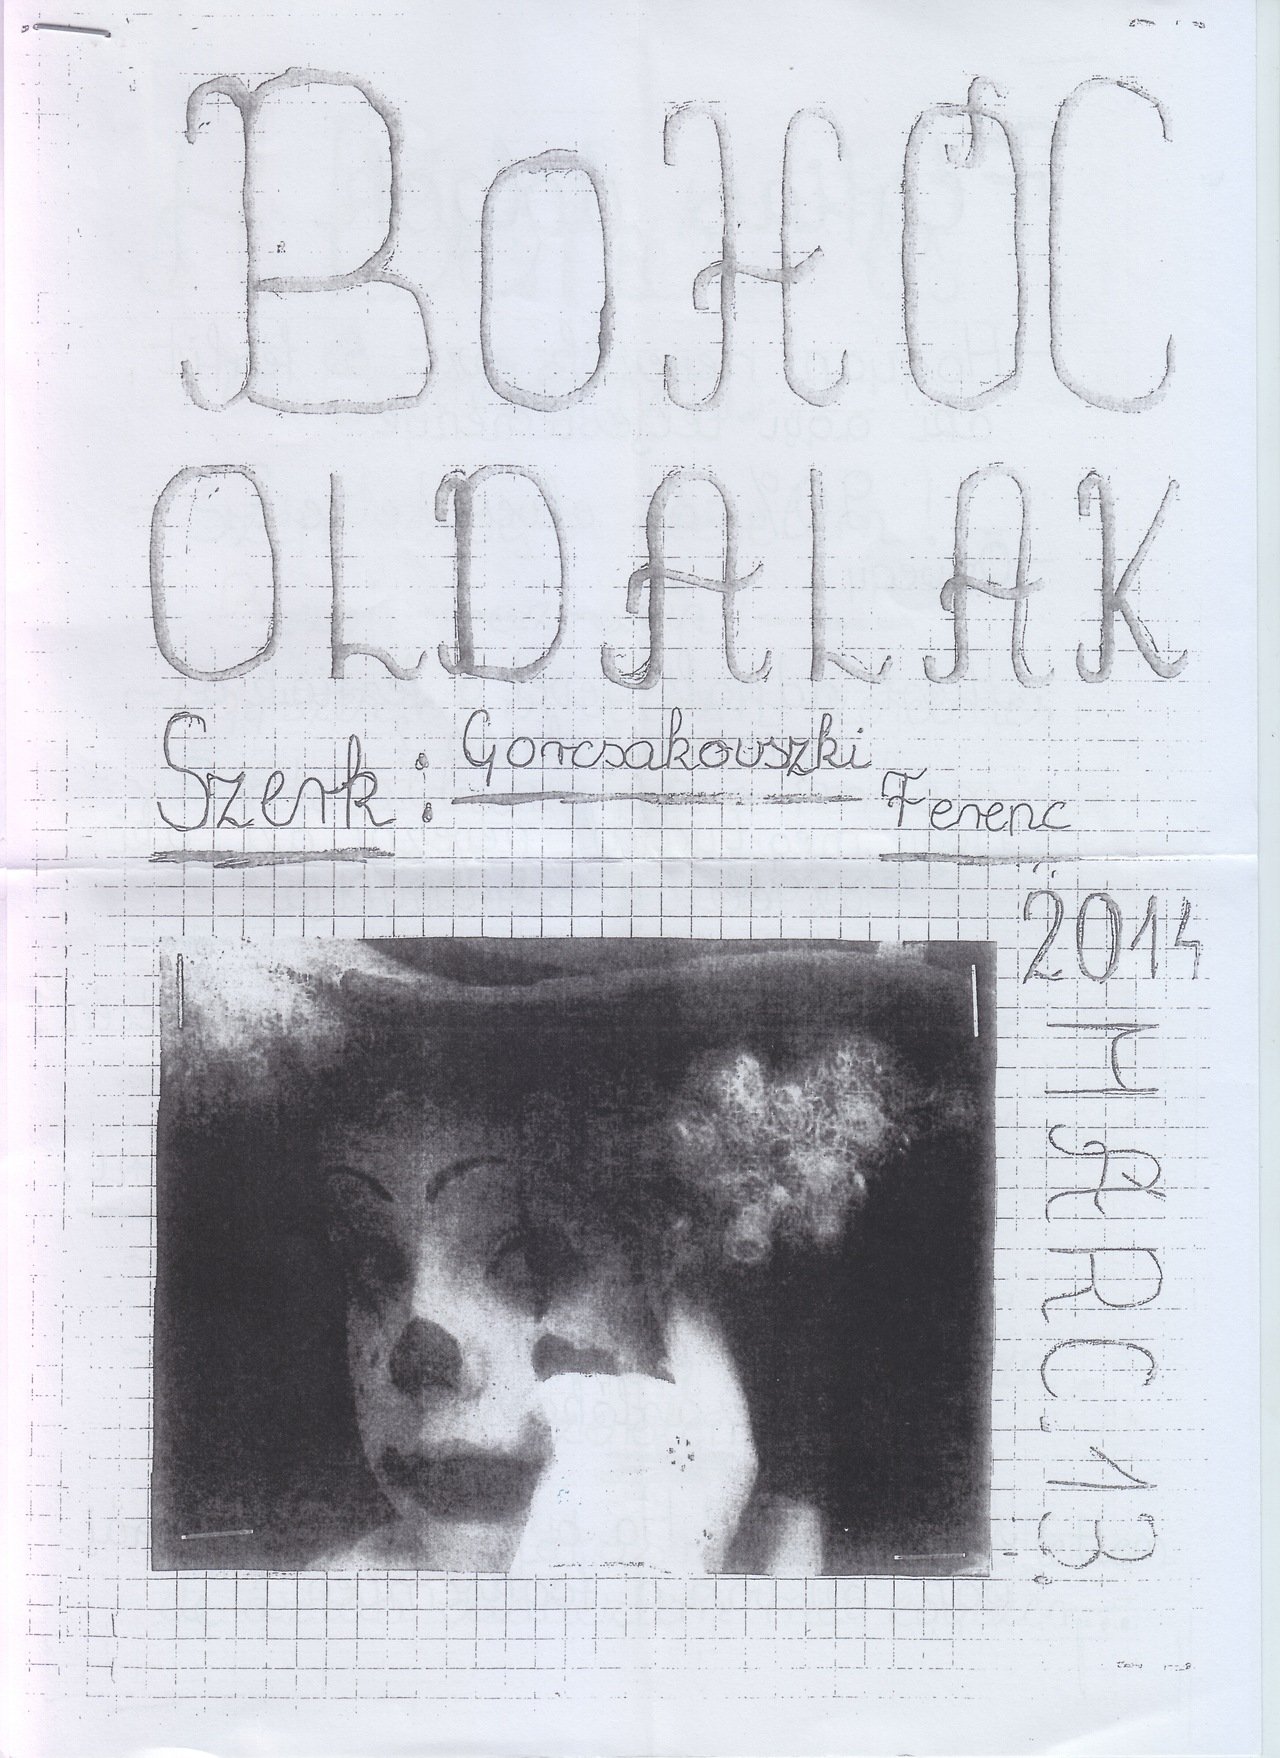 BOHÓC
OLDALAK
Szerk: Gorcsakovszki
Ferenc
2014
MÁRC. 13.